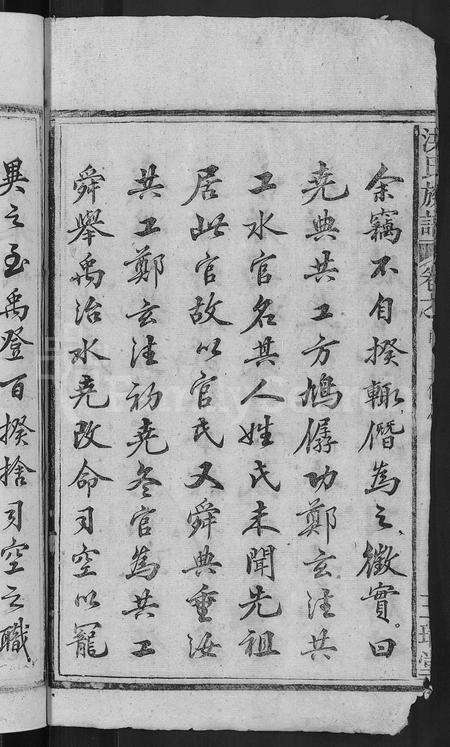 余竊不自揆輒僭為之徵實曰
堯典共工方鳩僝功鄭玄注共
工水官名其人姓氏未聞先祖
居此官故以官氏又舜典垂汝
共工鄭玄注初堯冬官為共工
舜舉禹治水堯改命司空以寵
異之至禹登百揆捨司空之職
洪氏族譜